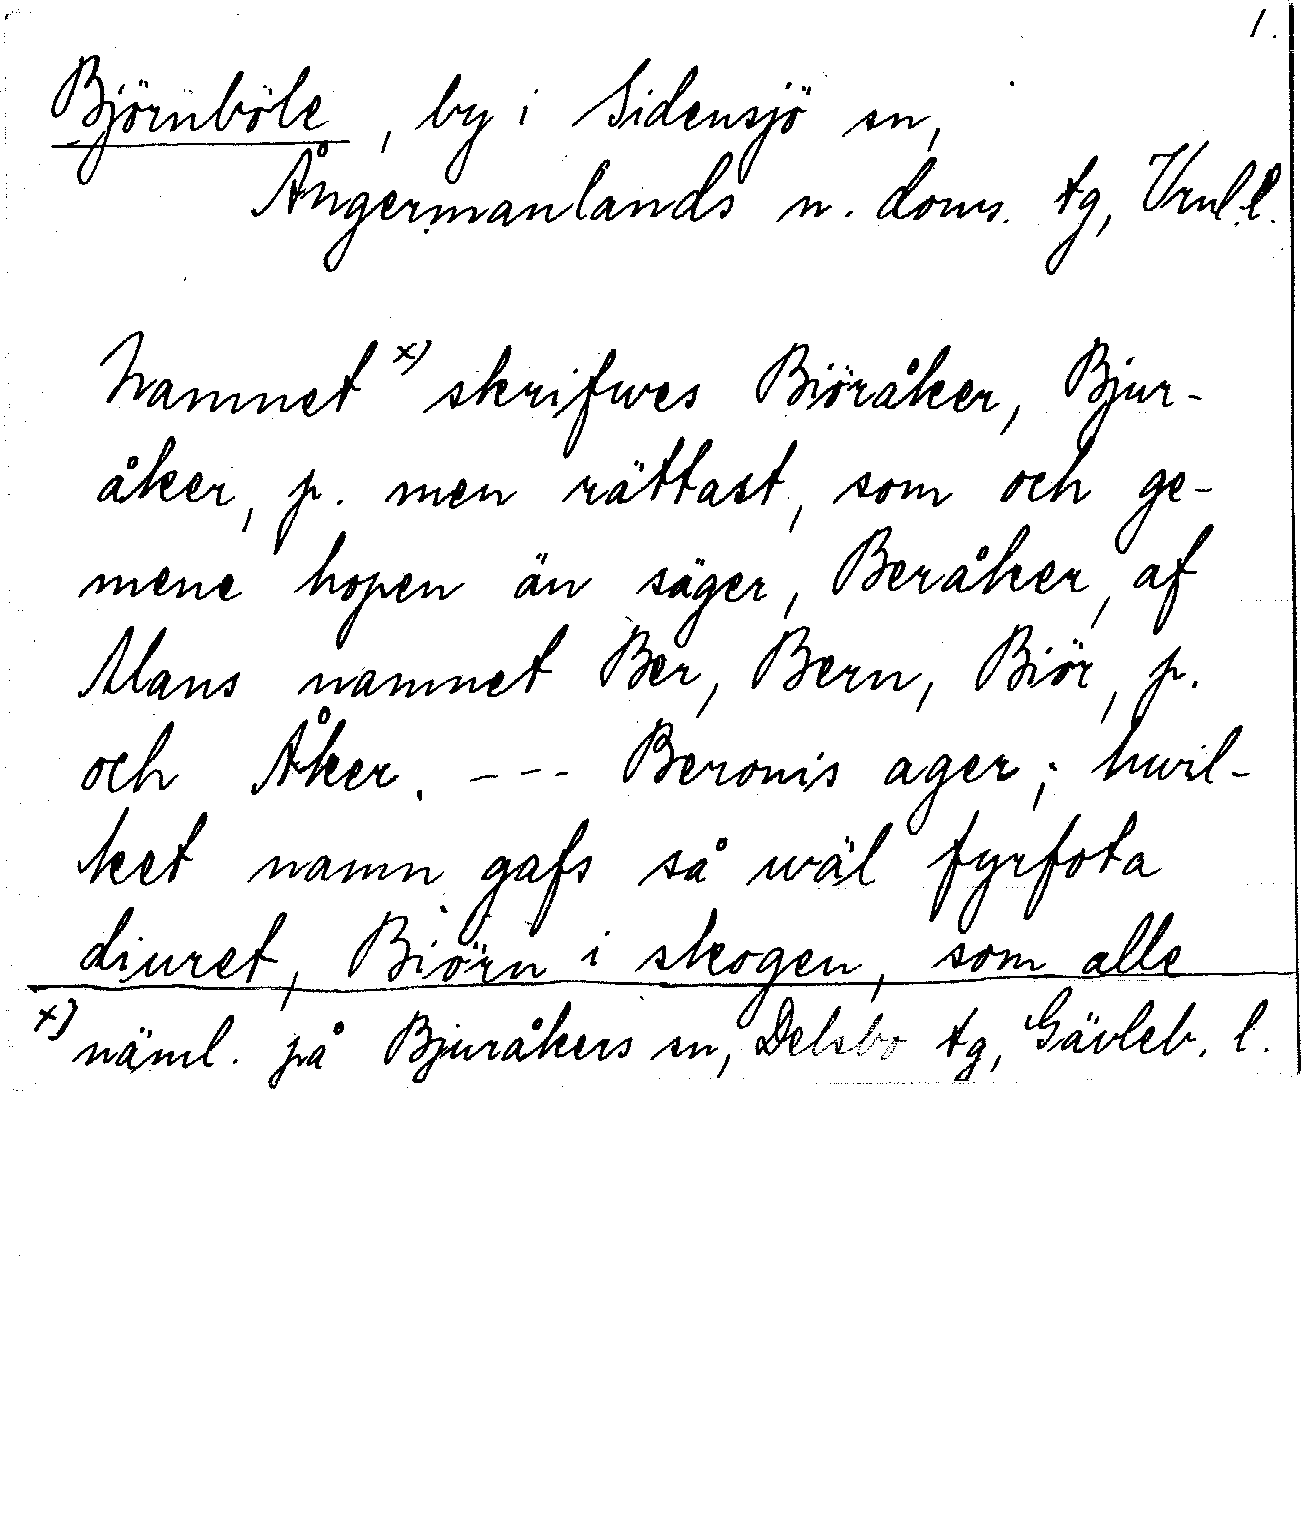 1.
Björnböle, by i Sidensjö sn,
Ångermanlands n. doms. tg, Vrnl.l.
Namnet x) skrifwes Biöråker, Bjur-
åker, p. men rättast, som och ge-
mene hopen än säger, Beråker, af
Mans namnet Ber, Bern, Biör, p.
och Åker. --- Beronis ager; hwil-
ket namn gafs så wäl fyrfota
diuret, Biörn i skogen, som alle
x) näml. på Bjuråkers sn, Delsbo tg, Gävleb. l.